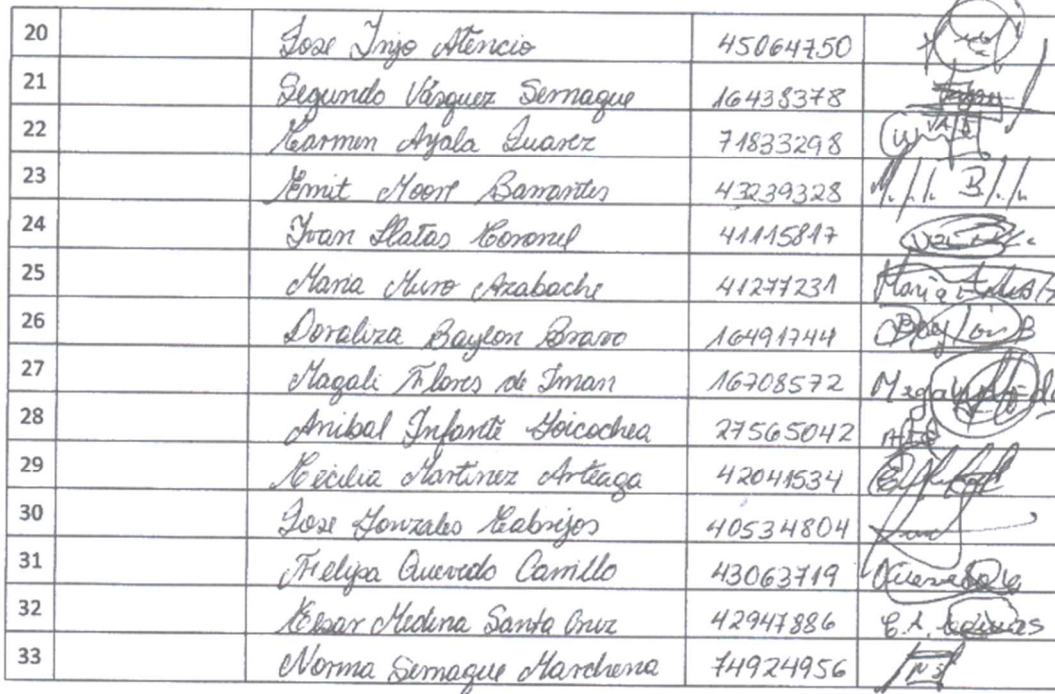 20 Jose Injo Atencio 45064750
21 Segundo Vásquez Semaque 16438378
22 Carmen Ayala Suarez 71833298
23 Emit Moore Barrantes 43239328
24 Ivan Llatas Coronel 41115817
25 Maria Muro Azabache 41277231
26 Doraliza Baylon Bravo 16491744 Baylon B
27 Magali Flores de Iman 16708572
28 Anibal Infante Goicochea 27565042
29 Cecilia Martinez Arteaga 42041534
30 Jose Gonzales Cabrejos 40534804
31 Felipa Quevedo Carrillo 43063719
32 Cesar Medina Santa Cruz 42947886
33 Norma Semaque Marchena 74924956